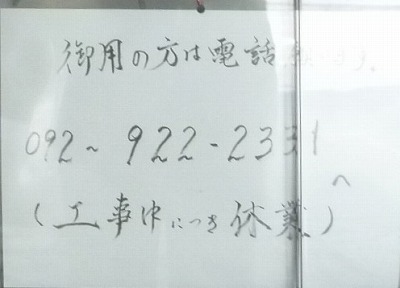 御用の方は電話願います。
092~922-2331
へ
(工事中につき休業)